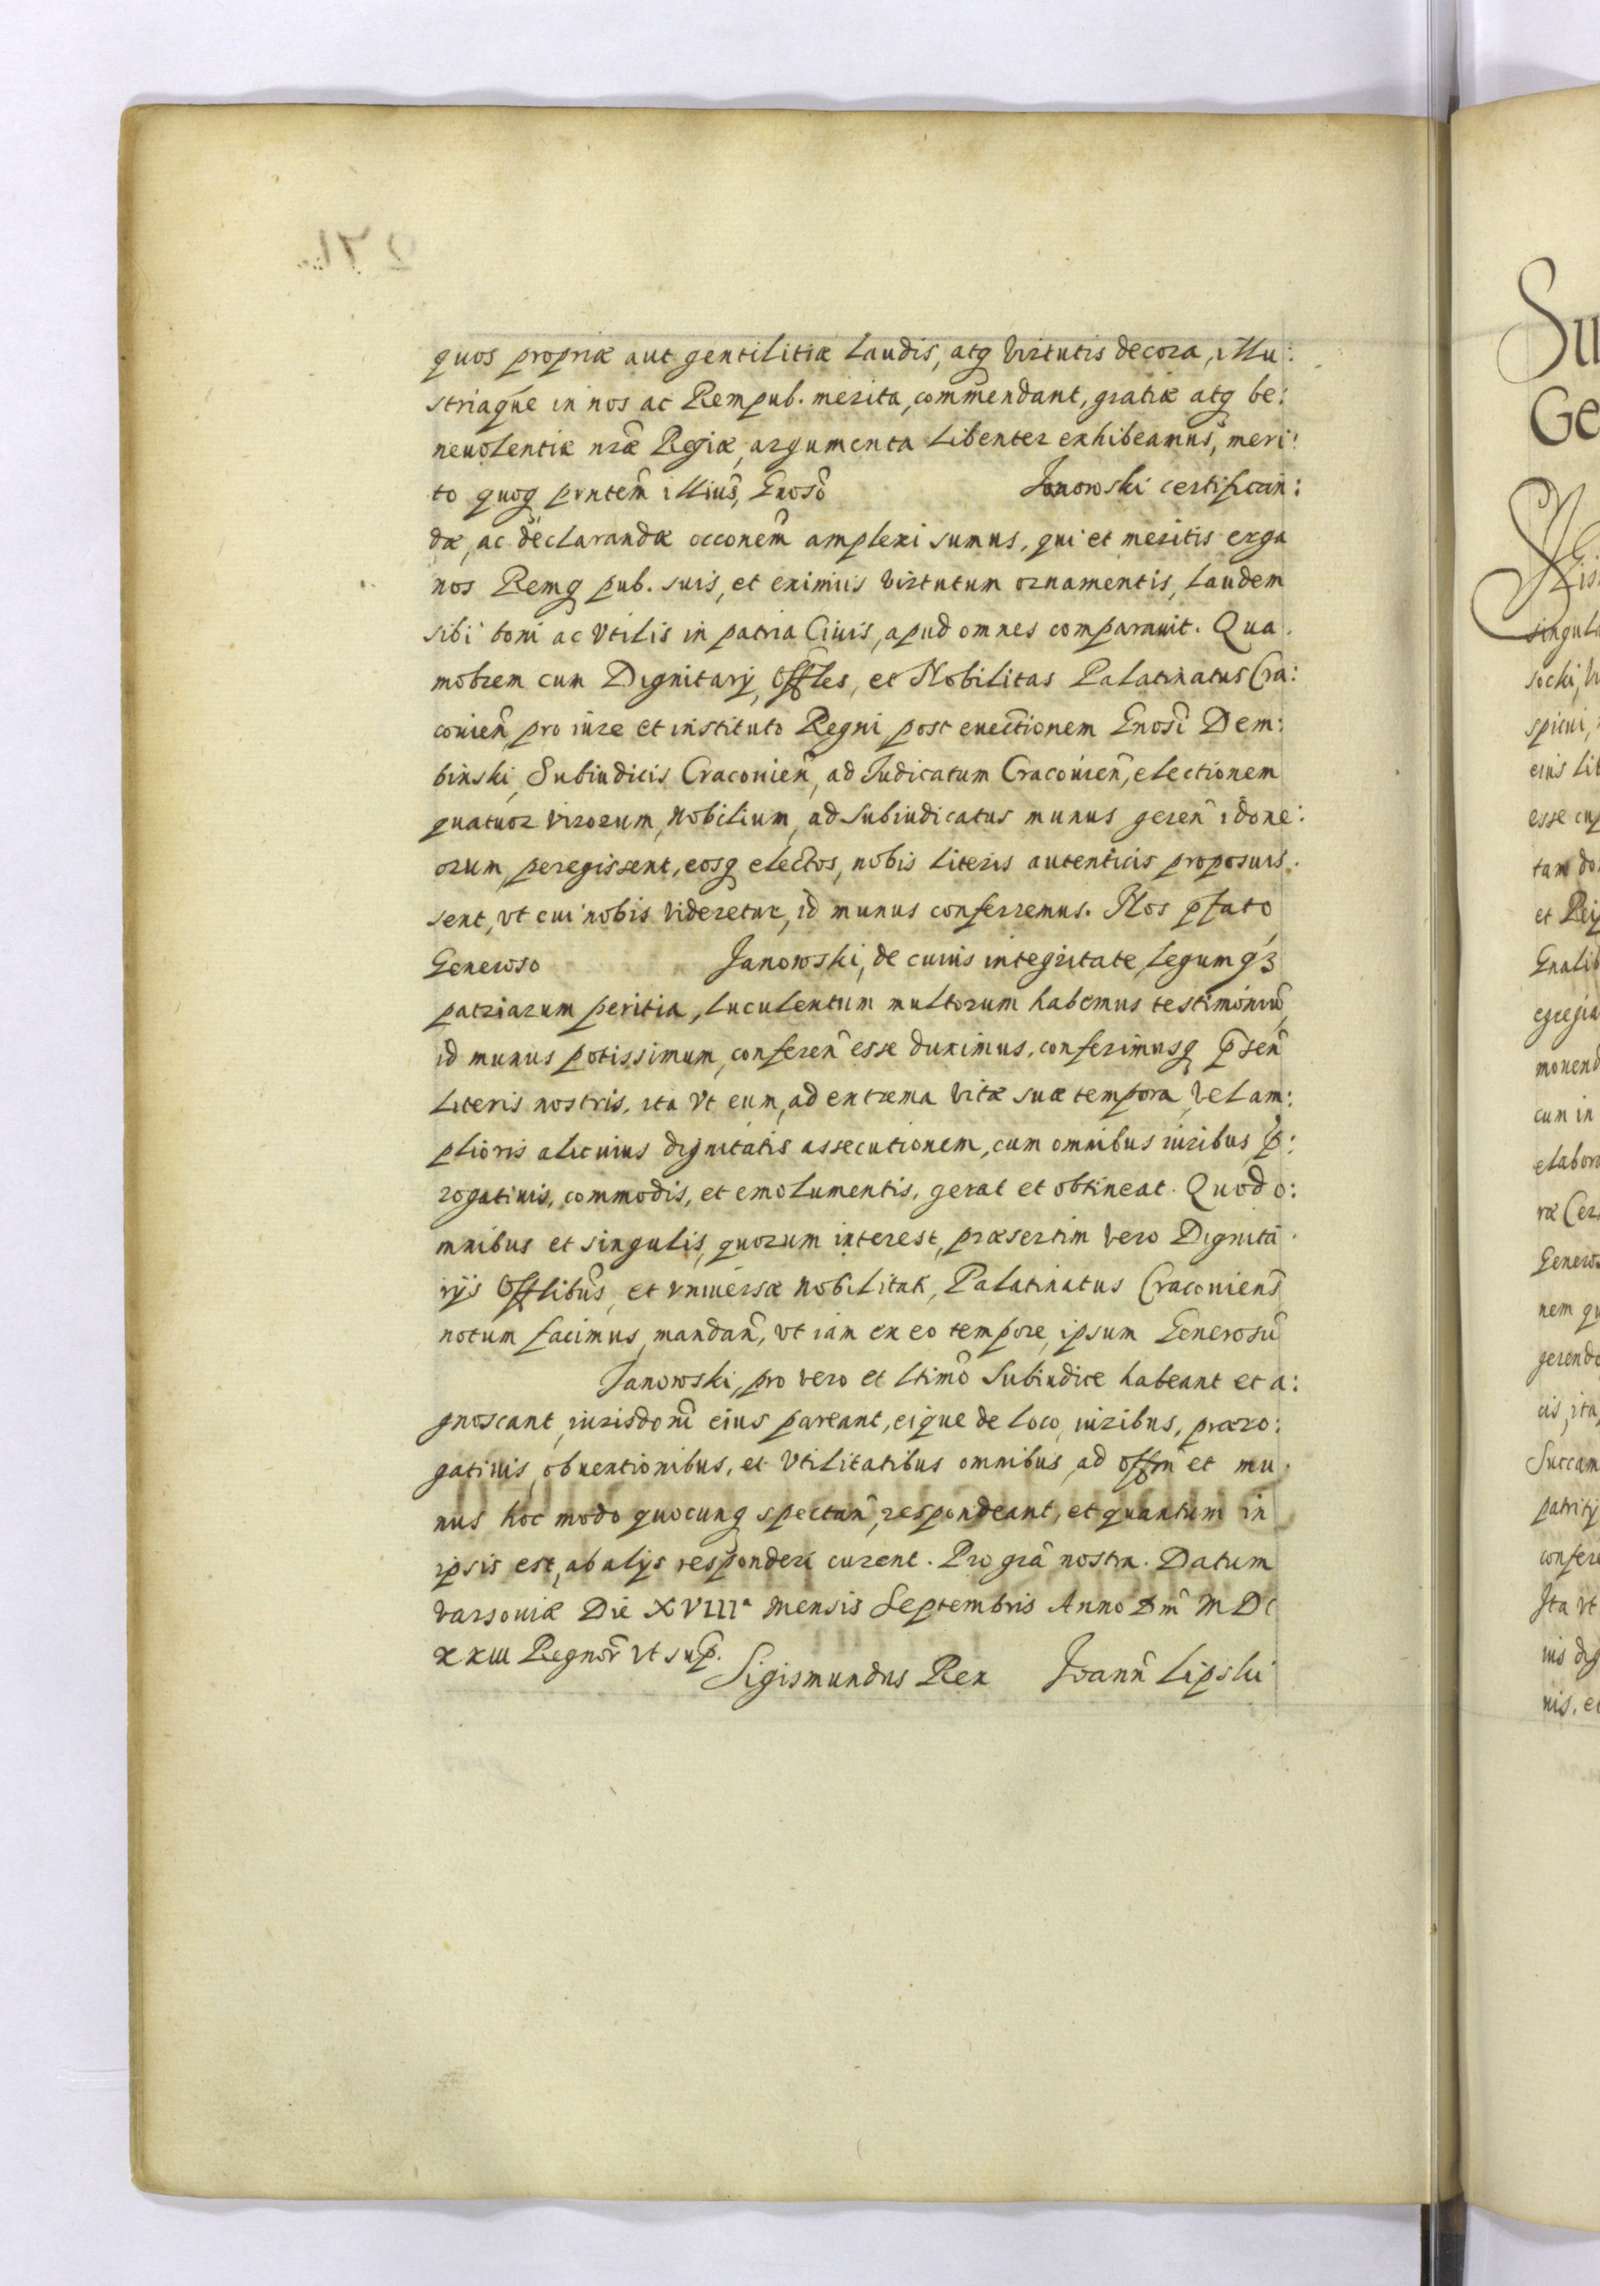 quos propriæ aut gentilitiæ laudis, atq virtutis decora, illu:
striaque in nos ac Rempub. merita, commendant, gratiæ atq be:
neuolentiæ nræ Regiæ, argumenta libenter exhibeamus, meri:
to quoq prntem illius, Gnoso Janowski certifican:
dæ, ac declarandæ occonem amplexi sumus, qui et meritis erga
nos Remq pub. suis, et eximiis virtutum ornamentis, laudem
sibi boni ac vtilis in patria Ciuis, apud omnes comparauit. Qua
mobrem cum Dignitarij, Offles, et Nobilitas Palatinatus Cra:
couien pro iure et instituto Regni post euectionem Gnosi Dem:
binski, Subiudicis Cracouien, ad Iudicatum Cracouien, electionem
quatuor virorum, nobilium, ad subiudicatus munus geren idone:
orum, peregissent, eosq electos, nobis literis autenticis proposuis:
sent, vt cui nobis videretur, id munus conferremus. Nos pfato
Generoso Janowski, de cuius integritate, legum qz
patriarum peritia, luculentum multorum habemus testimoniũ,
id munus potissimum, conferen esse duximus, conferimusq psen
literis nostris, ita vt eum, ad extrema vitæ suæ tempora, vel am:
plioris alicuius dignitatis assecutionem, cum omnibus iuribus, p:
rogatiuis, commodis, et emolumentis, gerat et obtineat. Quod o:
mnibus et singulis, quorum interest, præsertim vero Dignita
rijs Offlibus, et vniuersæ nobilitati, Palatinatus Cracouiens
notum facimus, mandan, vt iam ex eo tempore, ipsum Generosũ
Janowski, pro vero et ltimo Subiudice habeant et a:
gnoscant, iurisdoni eius pareant, eique de loco, iuribus, præro:
gatiuis, obuentionibus, et vtilitatibus omnibus, ad offm et mu
nus hoc modo quocunq spectan, respondeant, et quantum in
ipsis est, ab alijs responderi curent. Pro gra nostra. Datum
Varsouiæ Die XVIIIa mensis Septembris Anno Dni MDC
XXIII Regnor vt sup.
Sigismundus Rex Joann Lipski